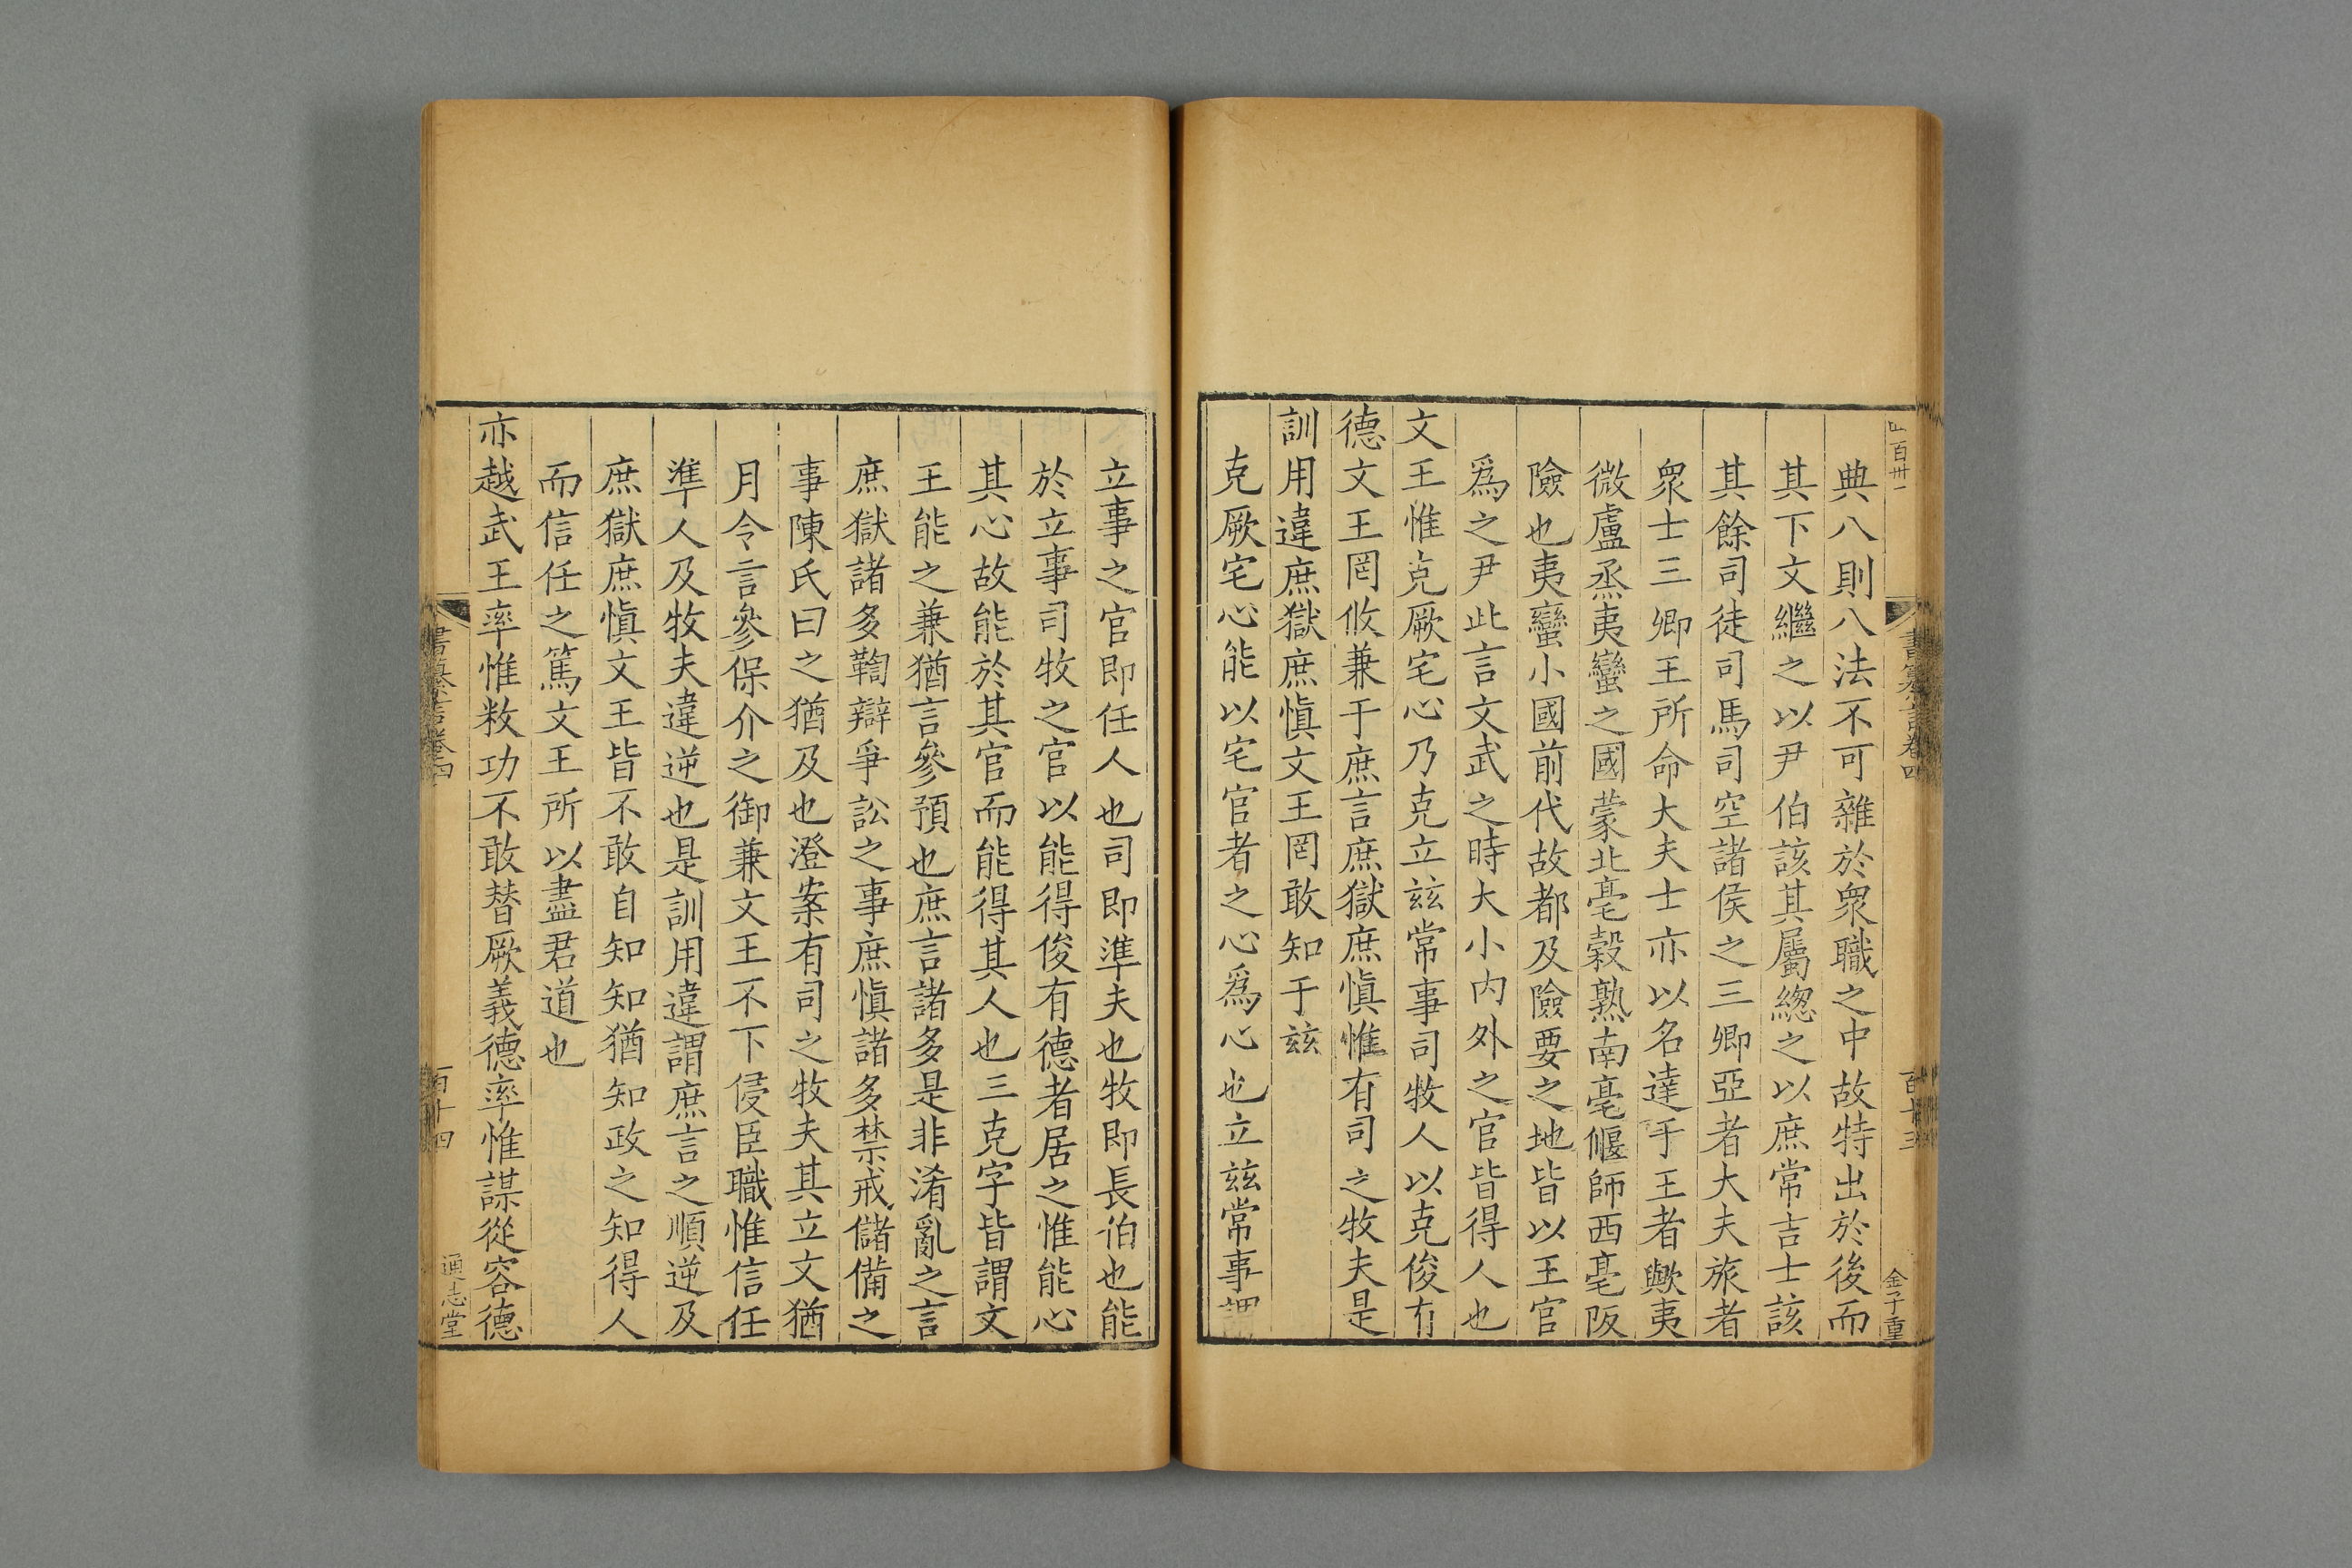 典八則八法不可雜於衆職之中故特出於後而
其下文繼之以尹伯該其屬緫之以庶常吉士該
其餘司徒司馬司空諸侯之三卿亞者大夫旅者
衆士三卿王所命大夫士亦以名達于王者歟夷
微盧烝夷蠻之國蒙北亳穀熟南亳偃師西亳阪
險也夷蠻小國前代故都及險要之地皆以王官
爲之尹此言文武之時大小内外之官皆得人也
文王惟克厥宅心乃克立兹常事司牧人以克俊有
德文王罔攸兼于庶言庶獄庶慎惟有司之牧夫是
訓用違庶獄庶慎文王罔敢知于兹
克厥宅心能以宅官者之心爲心也立兹常事謂
書纂言卷四
百十三
金子重
立事之官即任人也司即準夫也牧即長伯也能
於立事司牧之官以能得俊有德者居之惟能心
其心故能於其官而能得其人也三克字皆謂文
王能之兼猶言參預也庶言諸多是非淆亂之言
庶獄諸多鞫辯爭訟之事庶慎諸多禁戒儲備之
事陳氏曰之猶及也澄案有司之牧夫其立文猶
月令言參保介之御兼文王不下侵臣職惟信任
準人及牧夫違逆也是訓用違謂庶言之順逆及
庶獄庶慎文王皆不敢自知知猶知政之知得人
而信任之篤文王所以盡君道也
亦越武王率惟敉功不敢替厥義德率惟謀從容德
書纂言卷四
百十四
通志堂